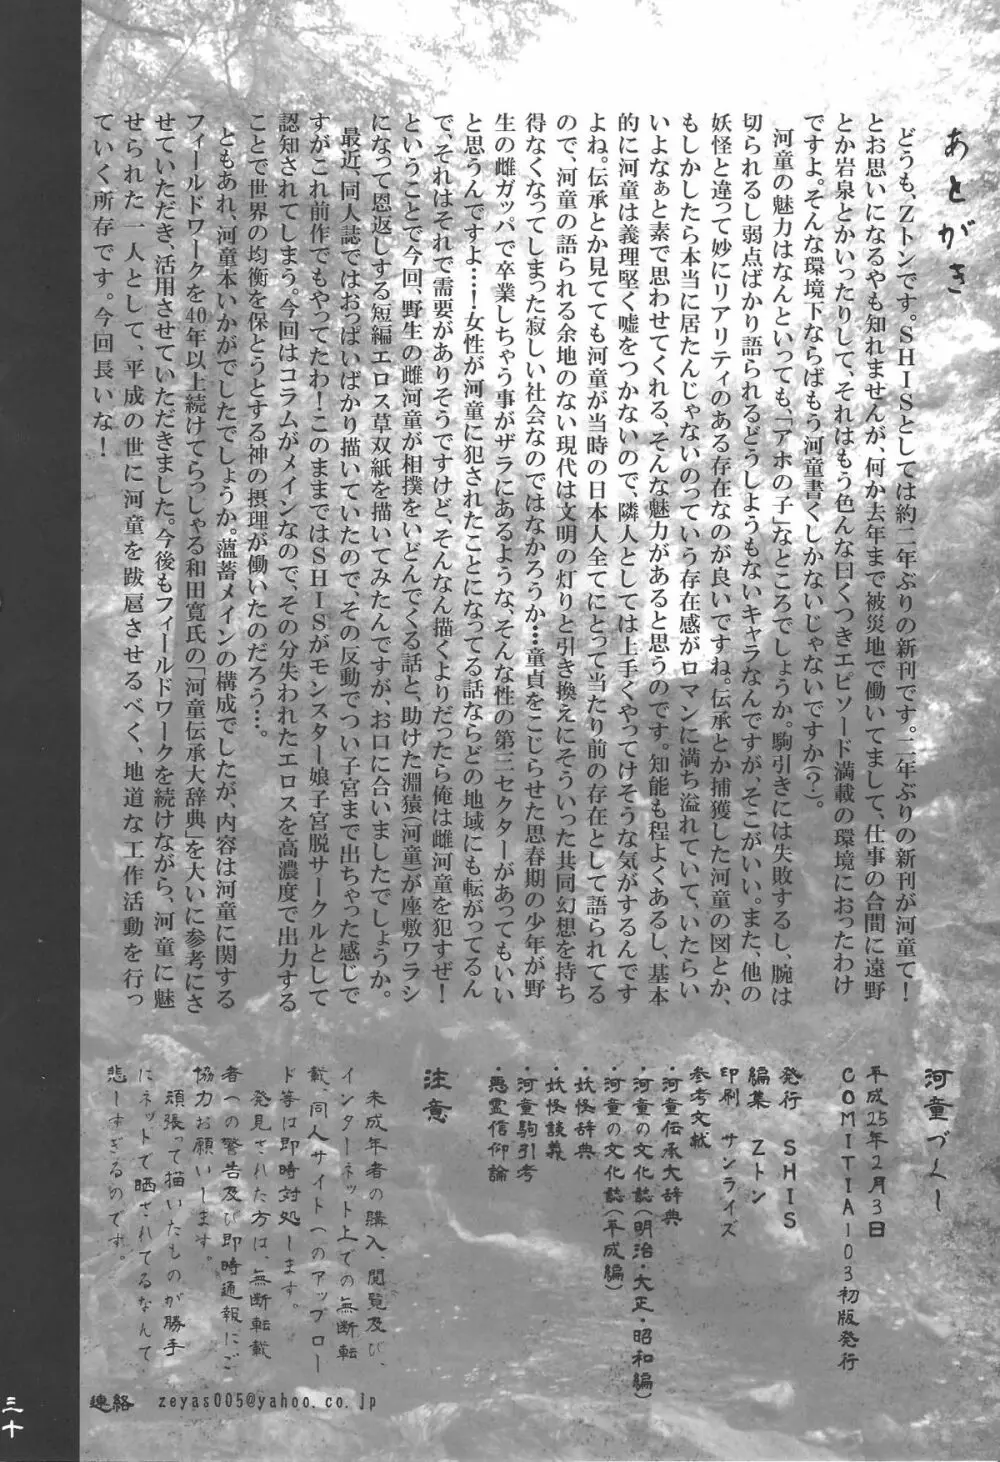 あとがき
どうも、Zトンです。SHISとしては約二年ぶりの新刊です。二年ぶりの新刊が河童て!
とお思いになるやも知れませんが、何か去年まで被災地で働いてまして、仕事の合間に遠野
とか岩泉とかいったりして、それはもう色んな曰くつきエピソード満載の環境におったわけ
ですよ。そんな環境下ならばもう河童書くしかないじゃないですか(?)。
河童の魅力はなんといっても、「アホの子」なところでしょうか。駒引きには失敗するし、腕は
切られるし弱点ばかり語られるどうしようもないキャラなんですが、そこがいい。また、他の
妖怪と違って妙にリアリティのある存在なのが良いですね。伝承とか捕獲した河童の図とか、
もしかしたら本当に居たんじゃないのっていう存在感がロマンに満ち溢れていて、いたらい
いよなぁと素で思わせてくれる、そんな魅力があると思うのです。知能も程よくあるし、基本
的に河童は義理堅く嘘をつかないので、隣人としては上手くやってけそうな気がするんです
よね。伝承とか見てても河童が当時の日本人全てにとって当たり前の存在として語られてる
ので、河童の語られる余地のない現代は文明の灯りと引き換えにそういった共同幻想を持ち
得なくなってしまった寂しい社会なのではなかろうか…童貞をこじらせた思春期の少年が野
生の雌ガッパで卒業しちゃう事がザラにあるような、そんな性の第三セクターがあってもいい
と思うんですよ…!女性が河童に犯されたことになってる話ならどの地域にも転がってるん
で、それはそれで需要がありそうですけど、そんなん描くよりだったら俺は雌河童を犯すぜ!
ということで今回、野生の雌河童が相撲をいどんでくる話と、助けた淵猿(河童)が座敷ワラシ
になって恩返しする短編エロス草双紙を描いてみたんですが、お口に合いましたでしょうか。
最近、同人誌ではおっぱいばかり描いていたので、その反動でつい子宮まで出ちゃった感じで
すがこれ前作でもやってたわ!このままではSHISがモンスター娘子宮脱サークルとして
認知されてしまう。今回はコラムがメインなので、その分失われたエロスを高濃度で出力する
ことで世界の均衡を保とうとする神の摂理が働いたのだろう…。
ともあれ、河童本いかがでしたでしょうか。薀蓄メインの構成でしたが、内容は河童に関する
フィールドワークを40年以上続けてらっしゃる和田寛氏の「河童伝承大辞典」を大いに参考にさ
せていただき、活用させていただきました。今後もフィールドワークを続けながら、河童に魅
せられた一人として、平成の世に河童を跋扈させるべく、地道な工作活動を行っ
ていく所存です。今回長いな!
河童づくし
平成25年2月3日
COMITIA103初版発行
発行 SHIS
編集 Zトン
印刷 サンライズ
参考文献
・河童伝承大辞典
・河童の文化誌(明治・大正・昭和編)
・河童の文化誌(平成編)
・妖怪辞典
・妖怪談義
・河童駒引考
・愚霊信仰論
注意
未成年者の購入、閲覧及び、
インターネット上での無断転
載、同人サイトへのアップロー
ド等は即時対処します。
発見された方は、無断転載
者への警告及び即時通報にご
協力お願いします。
頑張って描いたものが勝手
にネットで晒されてるなんて
悲しすぎるのです。
連絡 zeyas005@yahoo.co.jp
三十